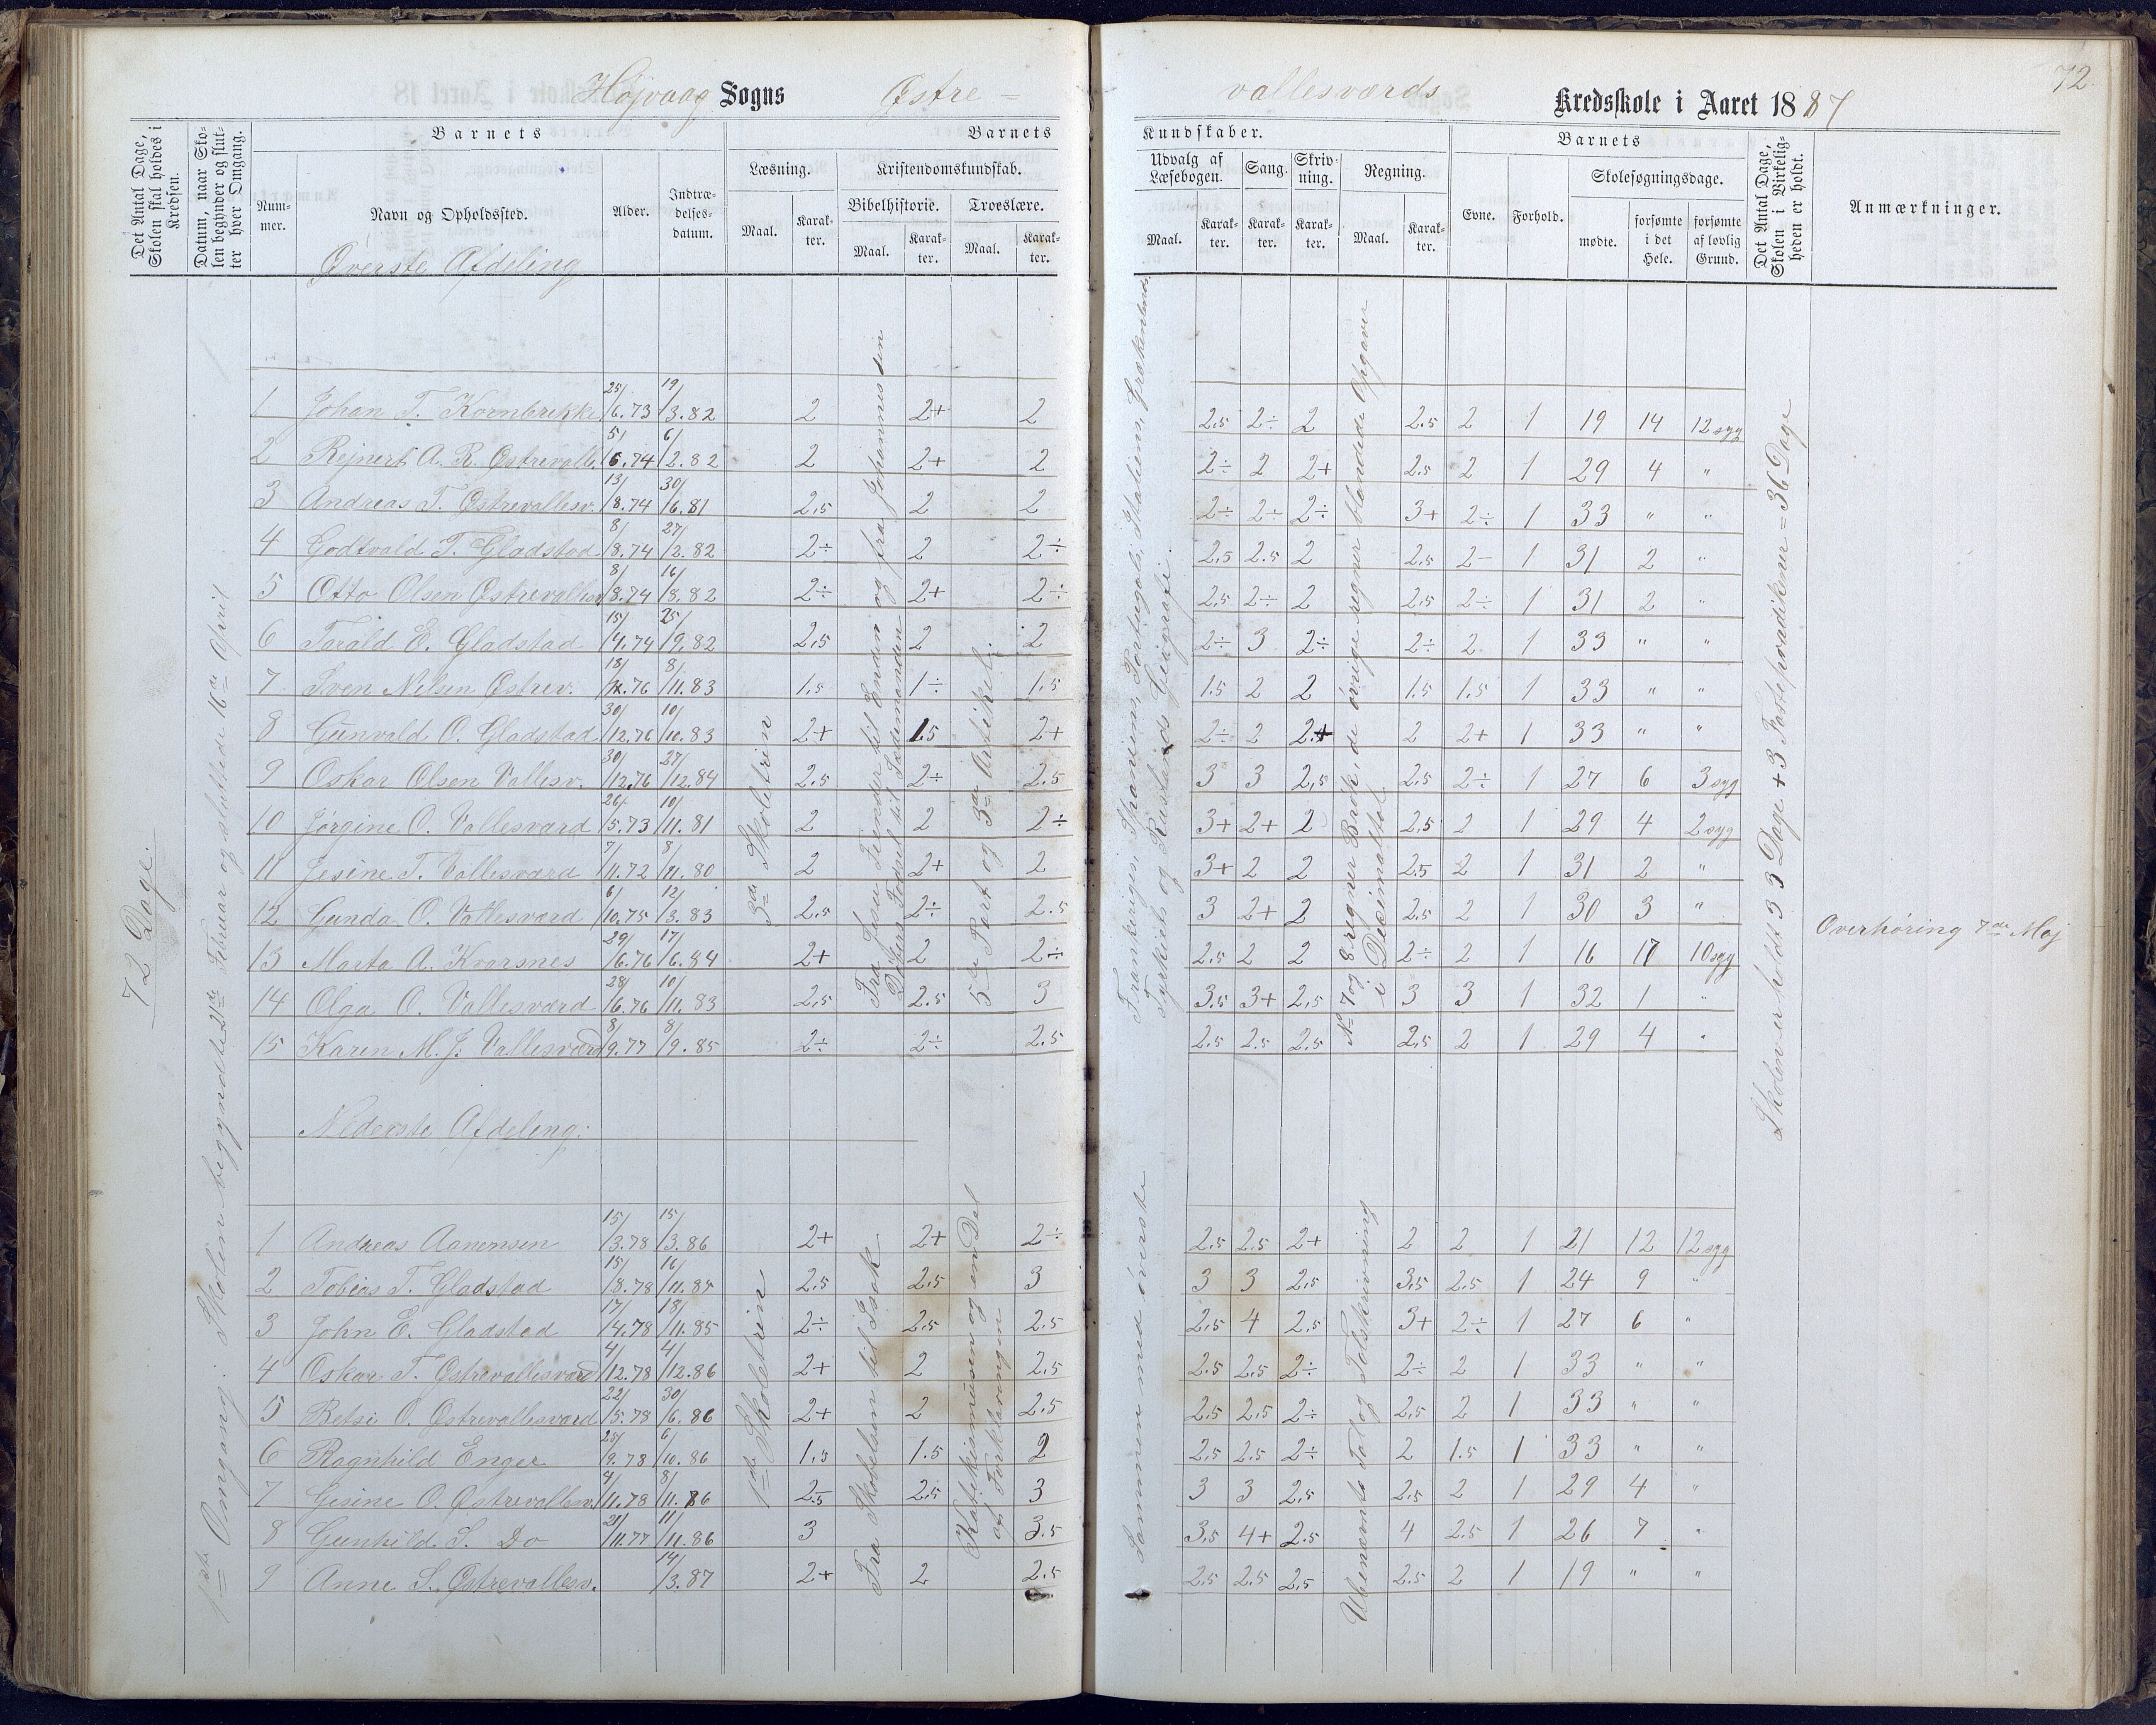 72.
Højvaag Sogns Østre =
vallesværds Kredsskole i Aaret 1887
Det Antal Dage, Skolen skal holdes i Kredsen.
Datum, naar Skolen begynder og slutter hver Omgang.
Barnets
Nummer.
Navn og Opholdssted.
Alder.
Indtrædelsesdatum.
Barnets
Læsning.
Maal.
Karakter.
Kristendomskundskab.
Bibelhistorie.
Maal.
Karakter.
Troeslære.
Maal.
Karakter.
Kundskaber.
Udvalg af Læsebogen.
Maal.
Karakter.
Sang.
Karakter.
Skrivning.
Karakter.
Regning.
Maal.
Karakter.
Barnets
Evne.
Forhold.
Skolesøgningsdage.
mødte.
forsømte i det Hele.
forsømte af lovlig Grund.
Det Antal Dage, Skolen i Virkeligheden er holdt.
Anmærkninger.
Øverste Afdeling
72 Dage.
1ste Omgang: Skolen begyndte 21de Februar og sluttede 16de April
3de Skoletrin
Fra Jesu Fiender til Enden og fra Johannes den Døbers Fødsel til Sædemanden
5te Part og 3die Artikel.
Frankriges, Spaniens, Portugals, Italiens, Grækenlands, Tyrkiets og Ruslands Geografi.
No 7 og 8 regner Brøk, de øvrige regner blandede Opgaver i Decimaltal
Skolen er holdt 33 Dage + 3 Fastepradikener = 36 Dage
Overhøring 7de Maj
1 Johan T. Kornbrekke 25/6.73 19/3.82 2 2+ 2 2.5 2÷ 2 2.5 2 1 19 14 12 syg
2 Rejnert A. R. Østrevalle. 5/6.74 6/2.82 2 2+ 2 2÷ 2 2+ 2.5 2 1 29 4 "
3 Andreas T. Østrevallesv. 13/8.74 30/6.81 2,5 2 2 2÷ 2÷ 2÷ 3+ 2÷ 1 33 " "
4 Godtvald T. Gladstad 8/8.74 27/2.82 2÷ 2 2÷ 2.5 2.5 2 2.5 2- 1 31 2 "
5 Otto Olsen Østrevallesv. 8/8.74 16/8.82 2÷ 2+ 2÷ 2.5 2÷ 2 2.5 2÷ 1 31 2 "
6 Tarald E. Gladstad 15/4.74 25/9.82 2,5 2 2 2÷ 3 2÷ 2÷ 2 1 33 " "
7 Sven Nilsen Østrev. 18/ .76 8/11.83 1,5 1÷ 1.5 1.5 2 2 1.5 1.5 1 33 " "
8 Gunvald O. Gladstad 30/12.76 10/10.83 2+ 1.5 2+ 2÷ 2 2+ 2 2+ 1 33 " "
9 Oskar Olsen Vallesv. 30/12.76 27/12.84 2.5 2÷ 2.5 3 3 2,5 2.5 2÷ 1 27 6 3 syg
10 Jørgine O. Vallesværd 26/5.73 10/11.81 2 2 2÷ 3+ 2+ 2 2,5 2 1 29 4 2 syg
11 Jesine T. Vallesværd 7/11.72 8/11.80 2 2+ 2 3+ 2 2 2.5 2 1 31 2 "
12 Gunda O. Vallesværd 6/10.75 12/3.83 2,5 2÷ 2.5 3 2+ 2 2.5 2 1 30 3 "
13 Marta A. Kvarsnes 29/6.76 17/6.84 2+ 2 2÷ 2.5 2 2 2÷ 2 1 16 17 10 syg
14 Olga O. Vallesværd 28/6.76 10/11.83 2,5 2.5 3 3.5 3+ 2,5 3 3 1 32 1 "
15 Karen M. J. Vallesværd 8/9.77 8/9.85 2÷ 2÷ 2.5 2.5 2.5 2.5 2,5 2 1 29 4 "
Nederste Afdeling:
1ste Skoletrin
Fra Skabelsen til Isak
Katekismusen og en Del af Forklaringen
Sammen med øverste
Ubenævnte Tal og Talskrivning
1 Andreas Aanensen 15/3.78 15/3.86 2+ 2+ 2÷ 2.5 2.5 2+ 2 2 1 21 12 12 syg
2 Tobias T. Gladstad 15/8.78 16/11.85 2,5 2.5 3 3 3 2.5 3,5 2.5 1 24 9 "
3 John E. Gladstad 17/4.78 18/11.85 2÷ 2.5 2.5 2,5 4 2.5 3+ 2÷ 1 27 6 "
4 Oskar T. Østrevallesværd 4/12.78 4/12.86 2+ 2 2,5 2.5 2,5 2÷ 2÷ 2 1 33 " "
5 Betsi O. Østrevallesværd 22/5.78 30/6.86 2+ 2 2.5 2,5 2,5 2÷ 2,5 2 1 33 " "
6 Ragnhild Enger 25/9.78 6/10.86 1,5 1.5 2 2,5 2.5 2÷ 2 1.5 1 33 " "
7 Gesine O. Østrevallesv. 4/11.78 8/11.86 2.5 2,5 3 3 3 2,5 2,5 2 1 29 4 "
8 Gunhild S. Do 21/11.77 11/11.86 3 3.5 3,5 4+ 2.5 4 2.5 1 26 7 "
9 Anne S. Østrevallesv. 14/3.87 2+ 2 2.5 2,5 2.5 2,5 2.5 2 1 19 " "